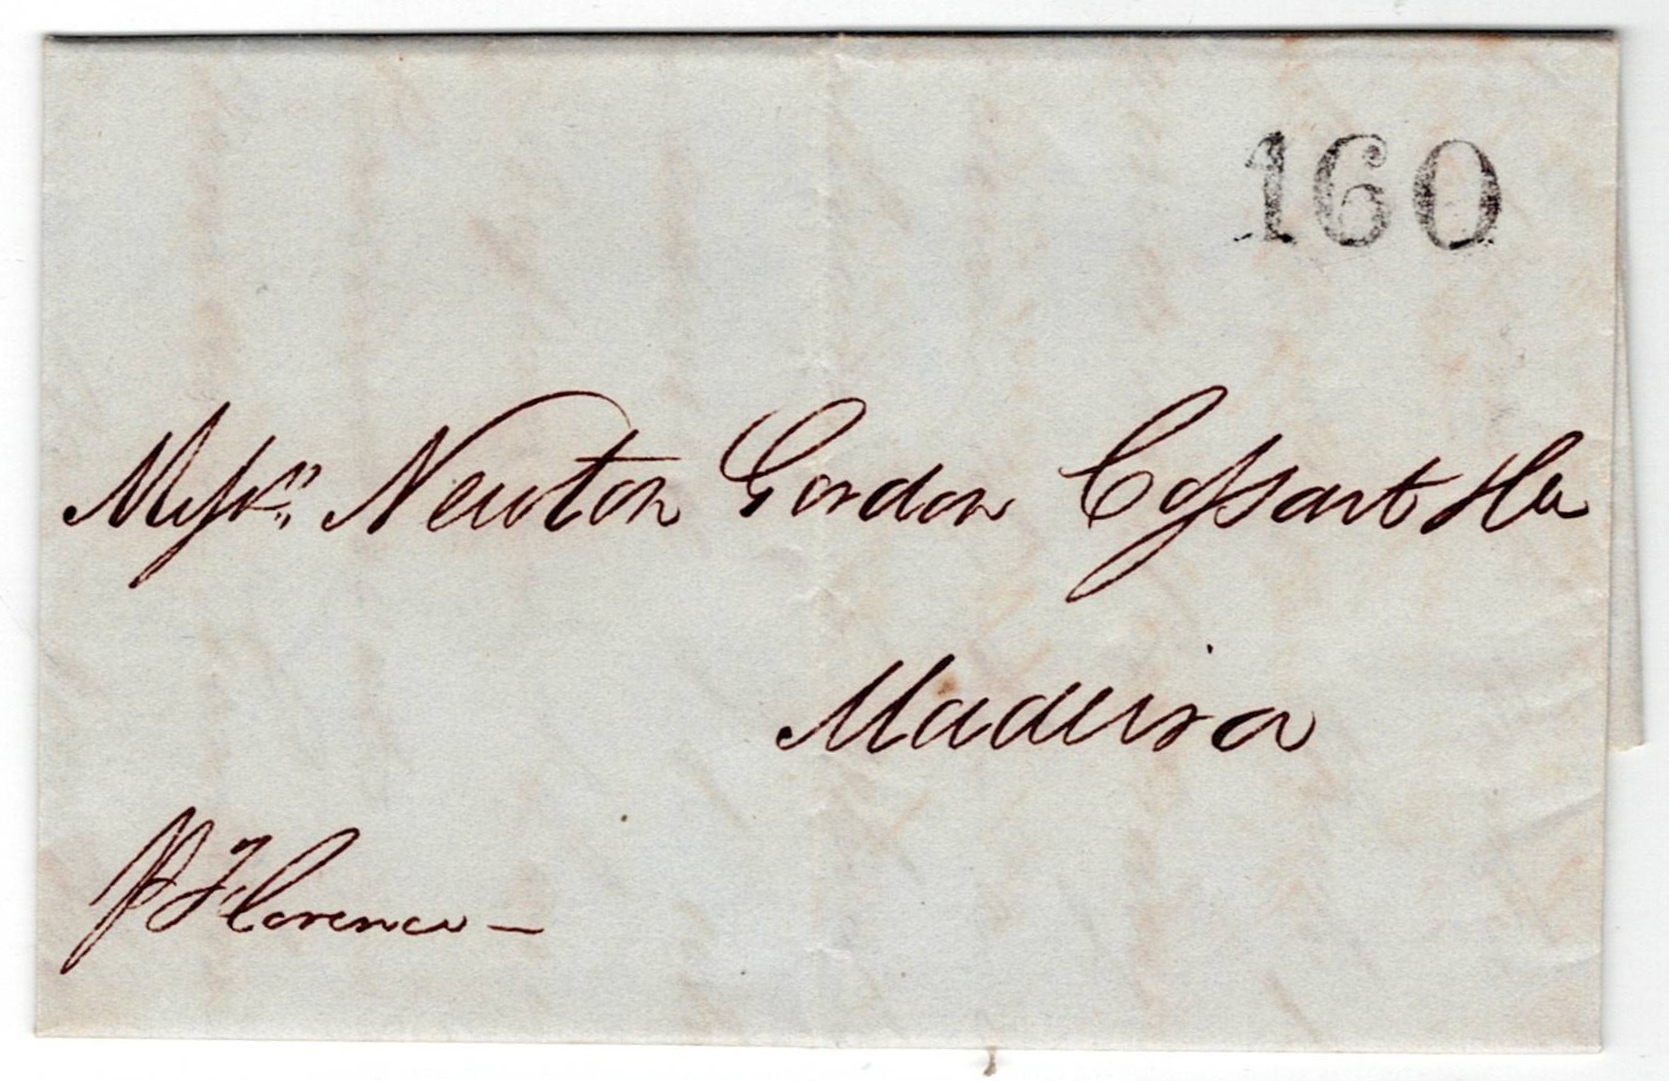 160
Messrs. Newton Gordon Cossart & Co
Madeira
p Florence —